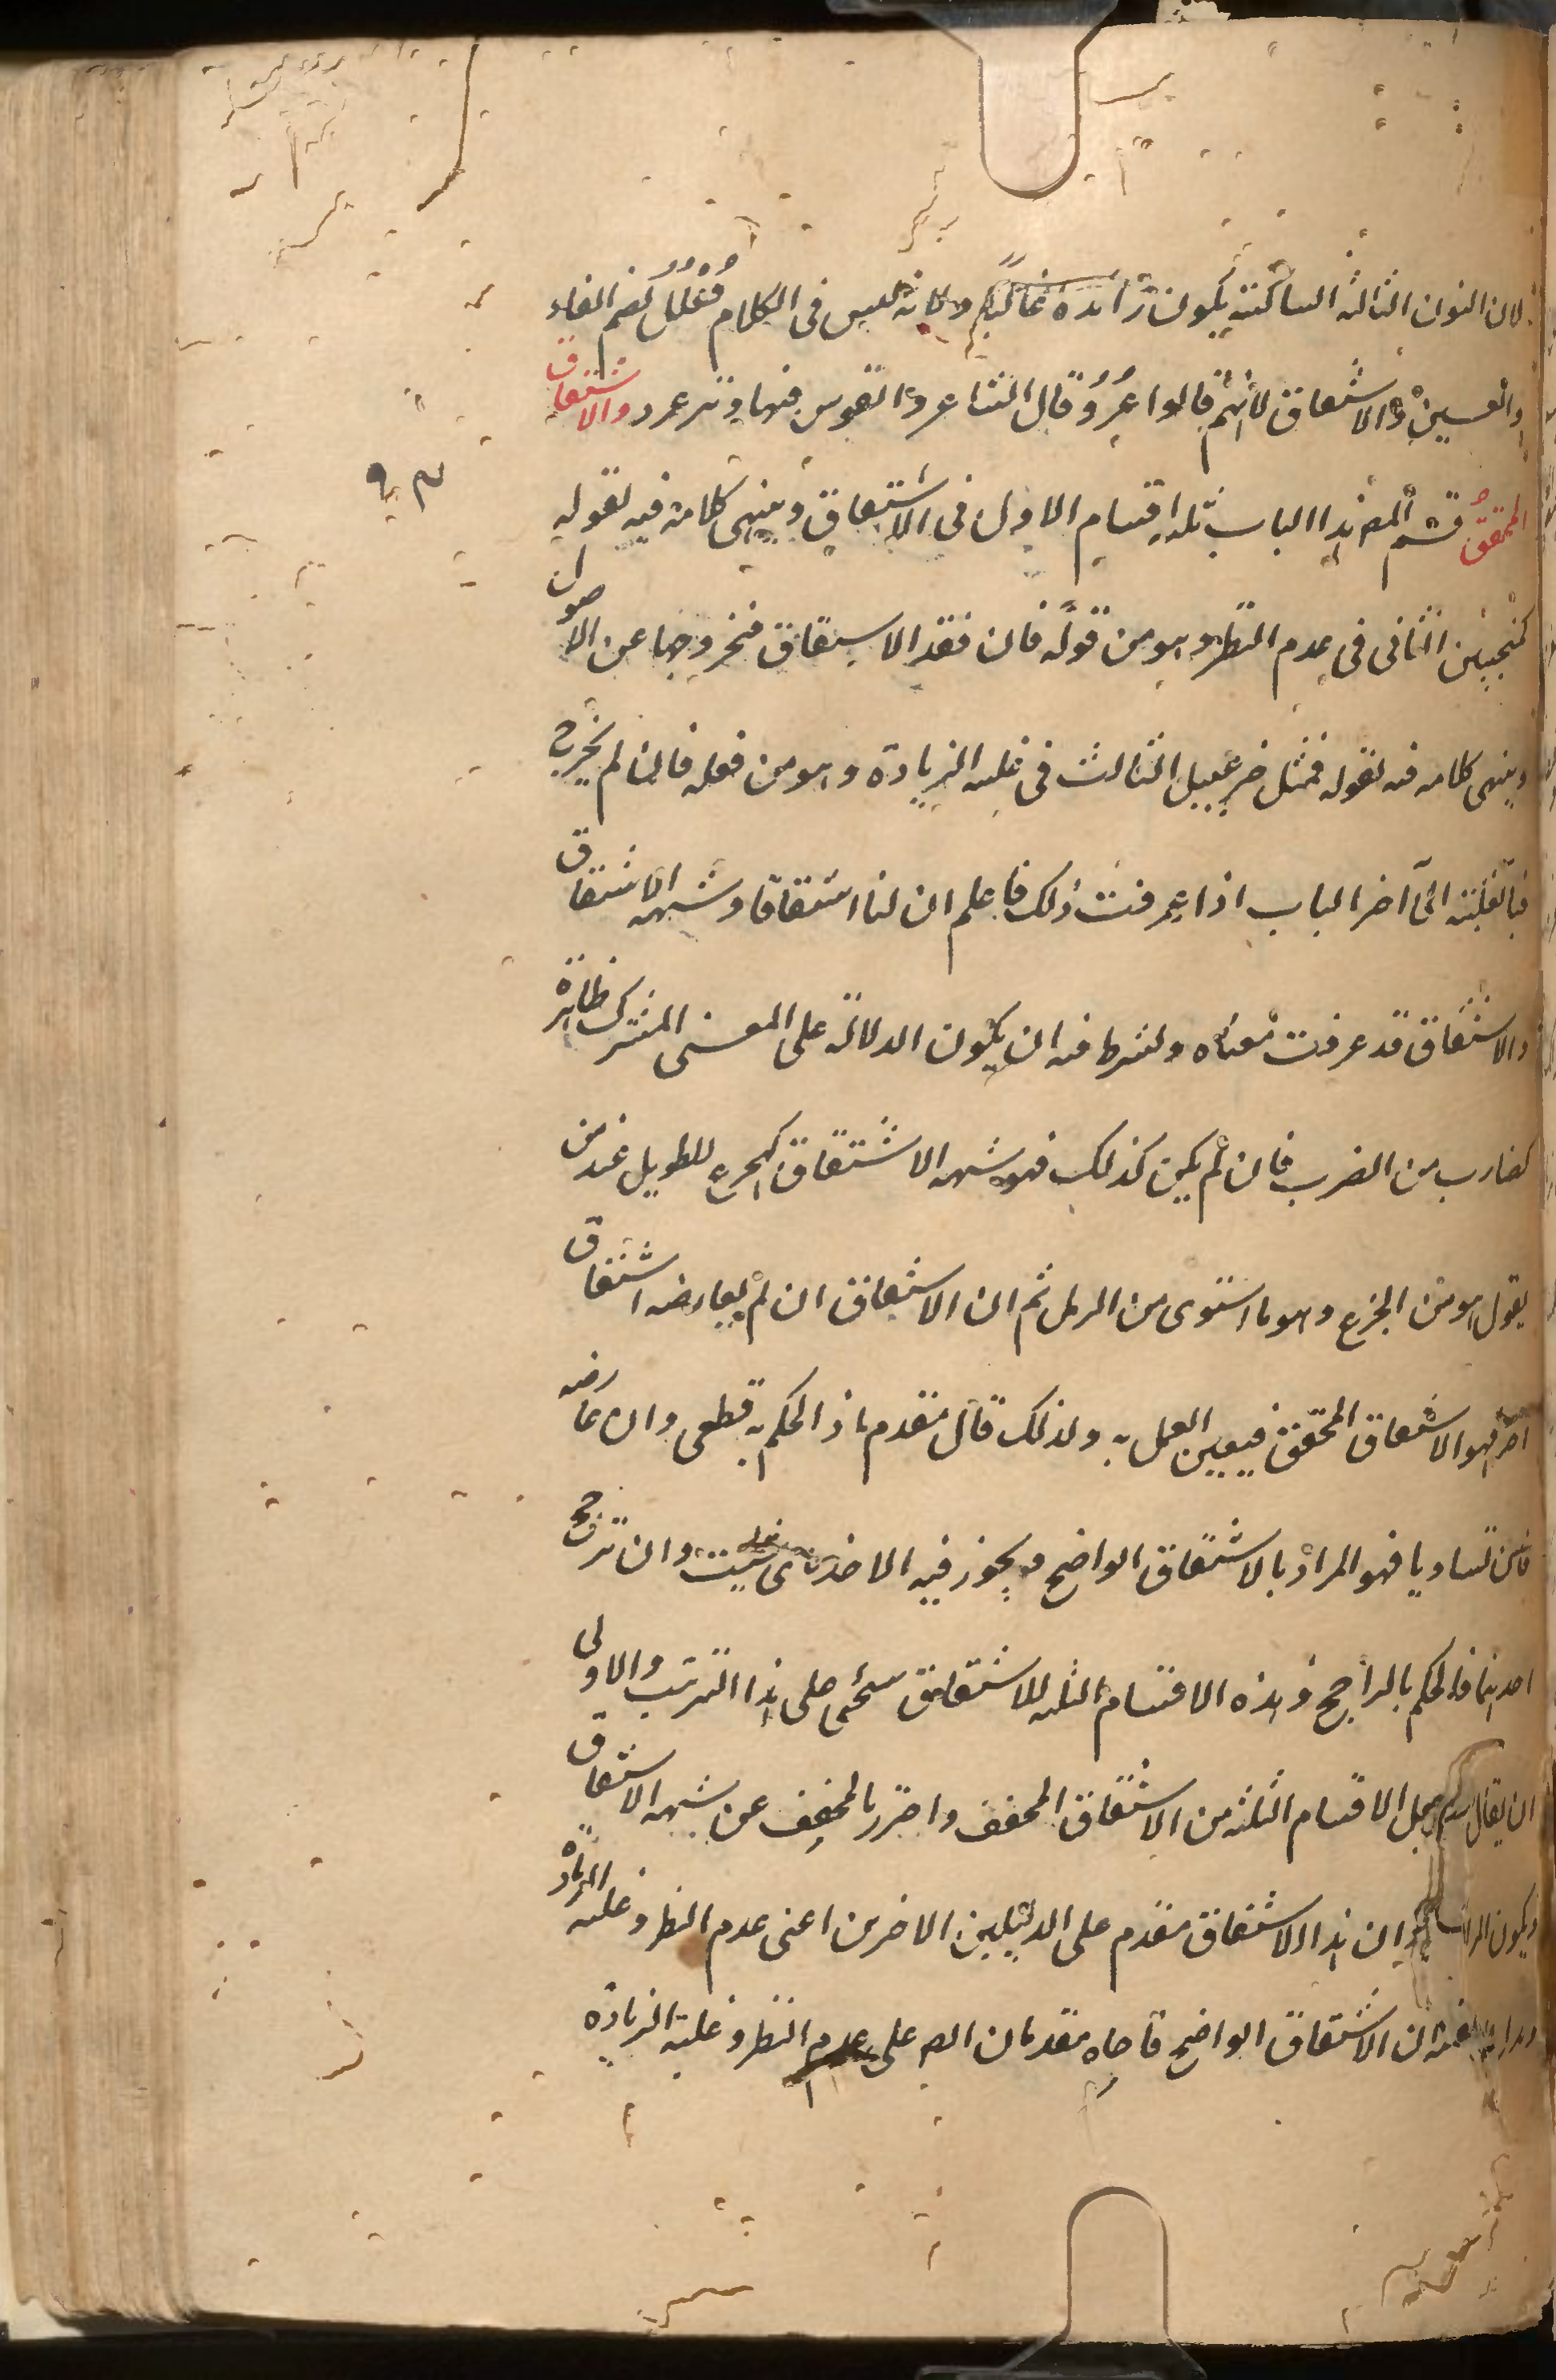 لان النون الثالثة الساكنة يكون زائدة غالبا ولانه ليس فى الكلام فُعُلُل بضم الفاء
والعين والاشتقاق لانهم قالوا عُرُدٌ قال الشاعر والقوس فيها وتر عرد والاشتقاق
المحقق قسم المص هذا الباب ثلثة اقسام الاول فى الاشتقاق وينهى كلامه فيه بقوله
كمنجنين الثانى فى عدم النظر وهو من قوله فان فقد الاشتقاق فبخروجها عن الاصول
وينهى كلامه فيه بقوله فمثل خزعبيل الثالث فى غلبه الزيادة وهو من قوله فان لم يخرج
فبالغلبة الى آخر الباب اذا عرفت ذلك فاعلم ان لنا اشتقاقا وشبهه الاشتقاق
والاشتقاق قد عرفت معناه ويشترط فيه ان يكون الدلالة على المعنى المشترك ظاهرة
كضارب من الضرب فان لم يكن كذلك فهو شبهه الاشتقاق كهجرع للطويل عند من
يقول هو من الجرع وهو ما استوى من الرمل ثم ان الاشتقاق ان لم يعارضه اشتقاق
آخر فهو الاشتقاق المحقق فيتعين العمل به ولذلك قال مقدم اذ الحكم به قطعى وان عارضه
فان تساويا فهو المراد بالاشتقاق الواضح ويجوز فيه الاخذ باى شيت وان ترجح
احدهما فالحكم بالراجح وهذه الاقسام الثلثه للاشتقاق ستجئ على هذا الترتيب والاولى
ان يقال يجعل الاقسام الثلثة من الاشتقاق المحقق واحترز بالمحقق عن شبهه الاشتقاق
ويكون ان هذا الاشتقاق مقدم على الدليلين الاخرين اعنى عدم النظر وغلبه الزيادة
ان الاشتقاق الواضح على عدم النظر وغلبة الزيادة